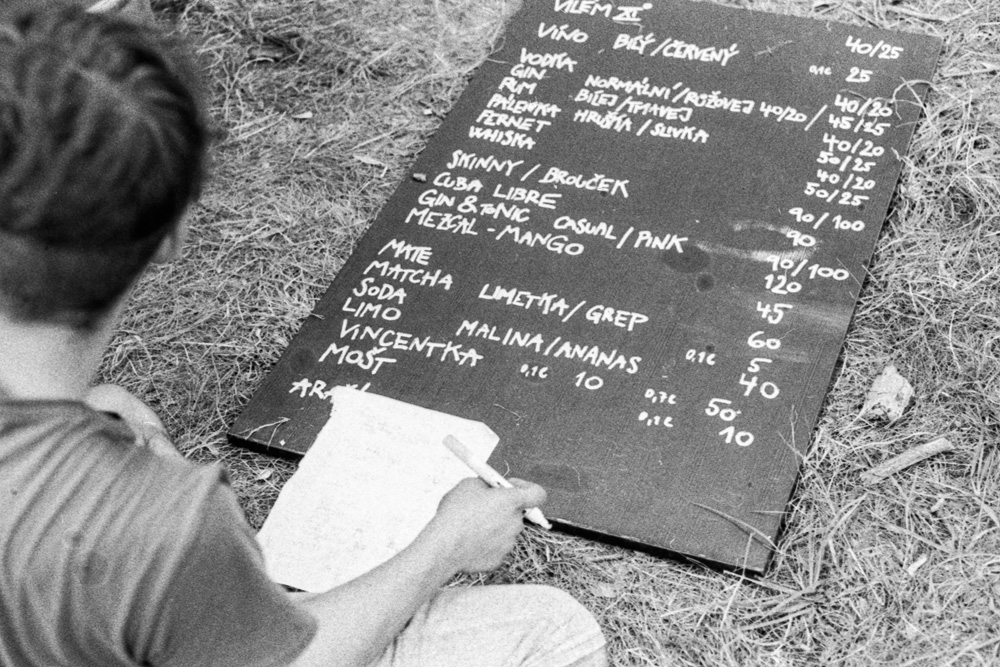 VILEM XI° 40/25
VÍNO BÍLÝ/ČERVENÝ 0,1l 25
VODKA 40/20
GIN NORMÁLNÍ/RŮŽOVEJ 40/20 / 45/25
RUM BÍLEJ/TMAVEJ 40/20
PÁLENKA HRUŠKA/SLIVKA 50/25
FERNET 40/20
WHISKA 50/25
SKINNY/BROUČEK 90/100
CUBA LIBRE 90
GIN & TONIC CASUAL/PINK 90/100
MEZCAL - MANGO 120
MATE 45
MATCHA LIMETKA/GREP 60
SODA 0,1l 5
LIMO MALINA/ANANAS 40
VINCENTKA 0,1l 10 0,7l 50
MOŠT 0,1l 10